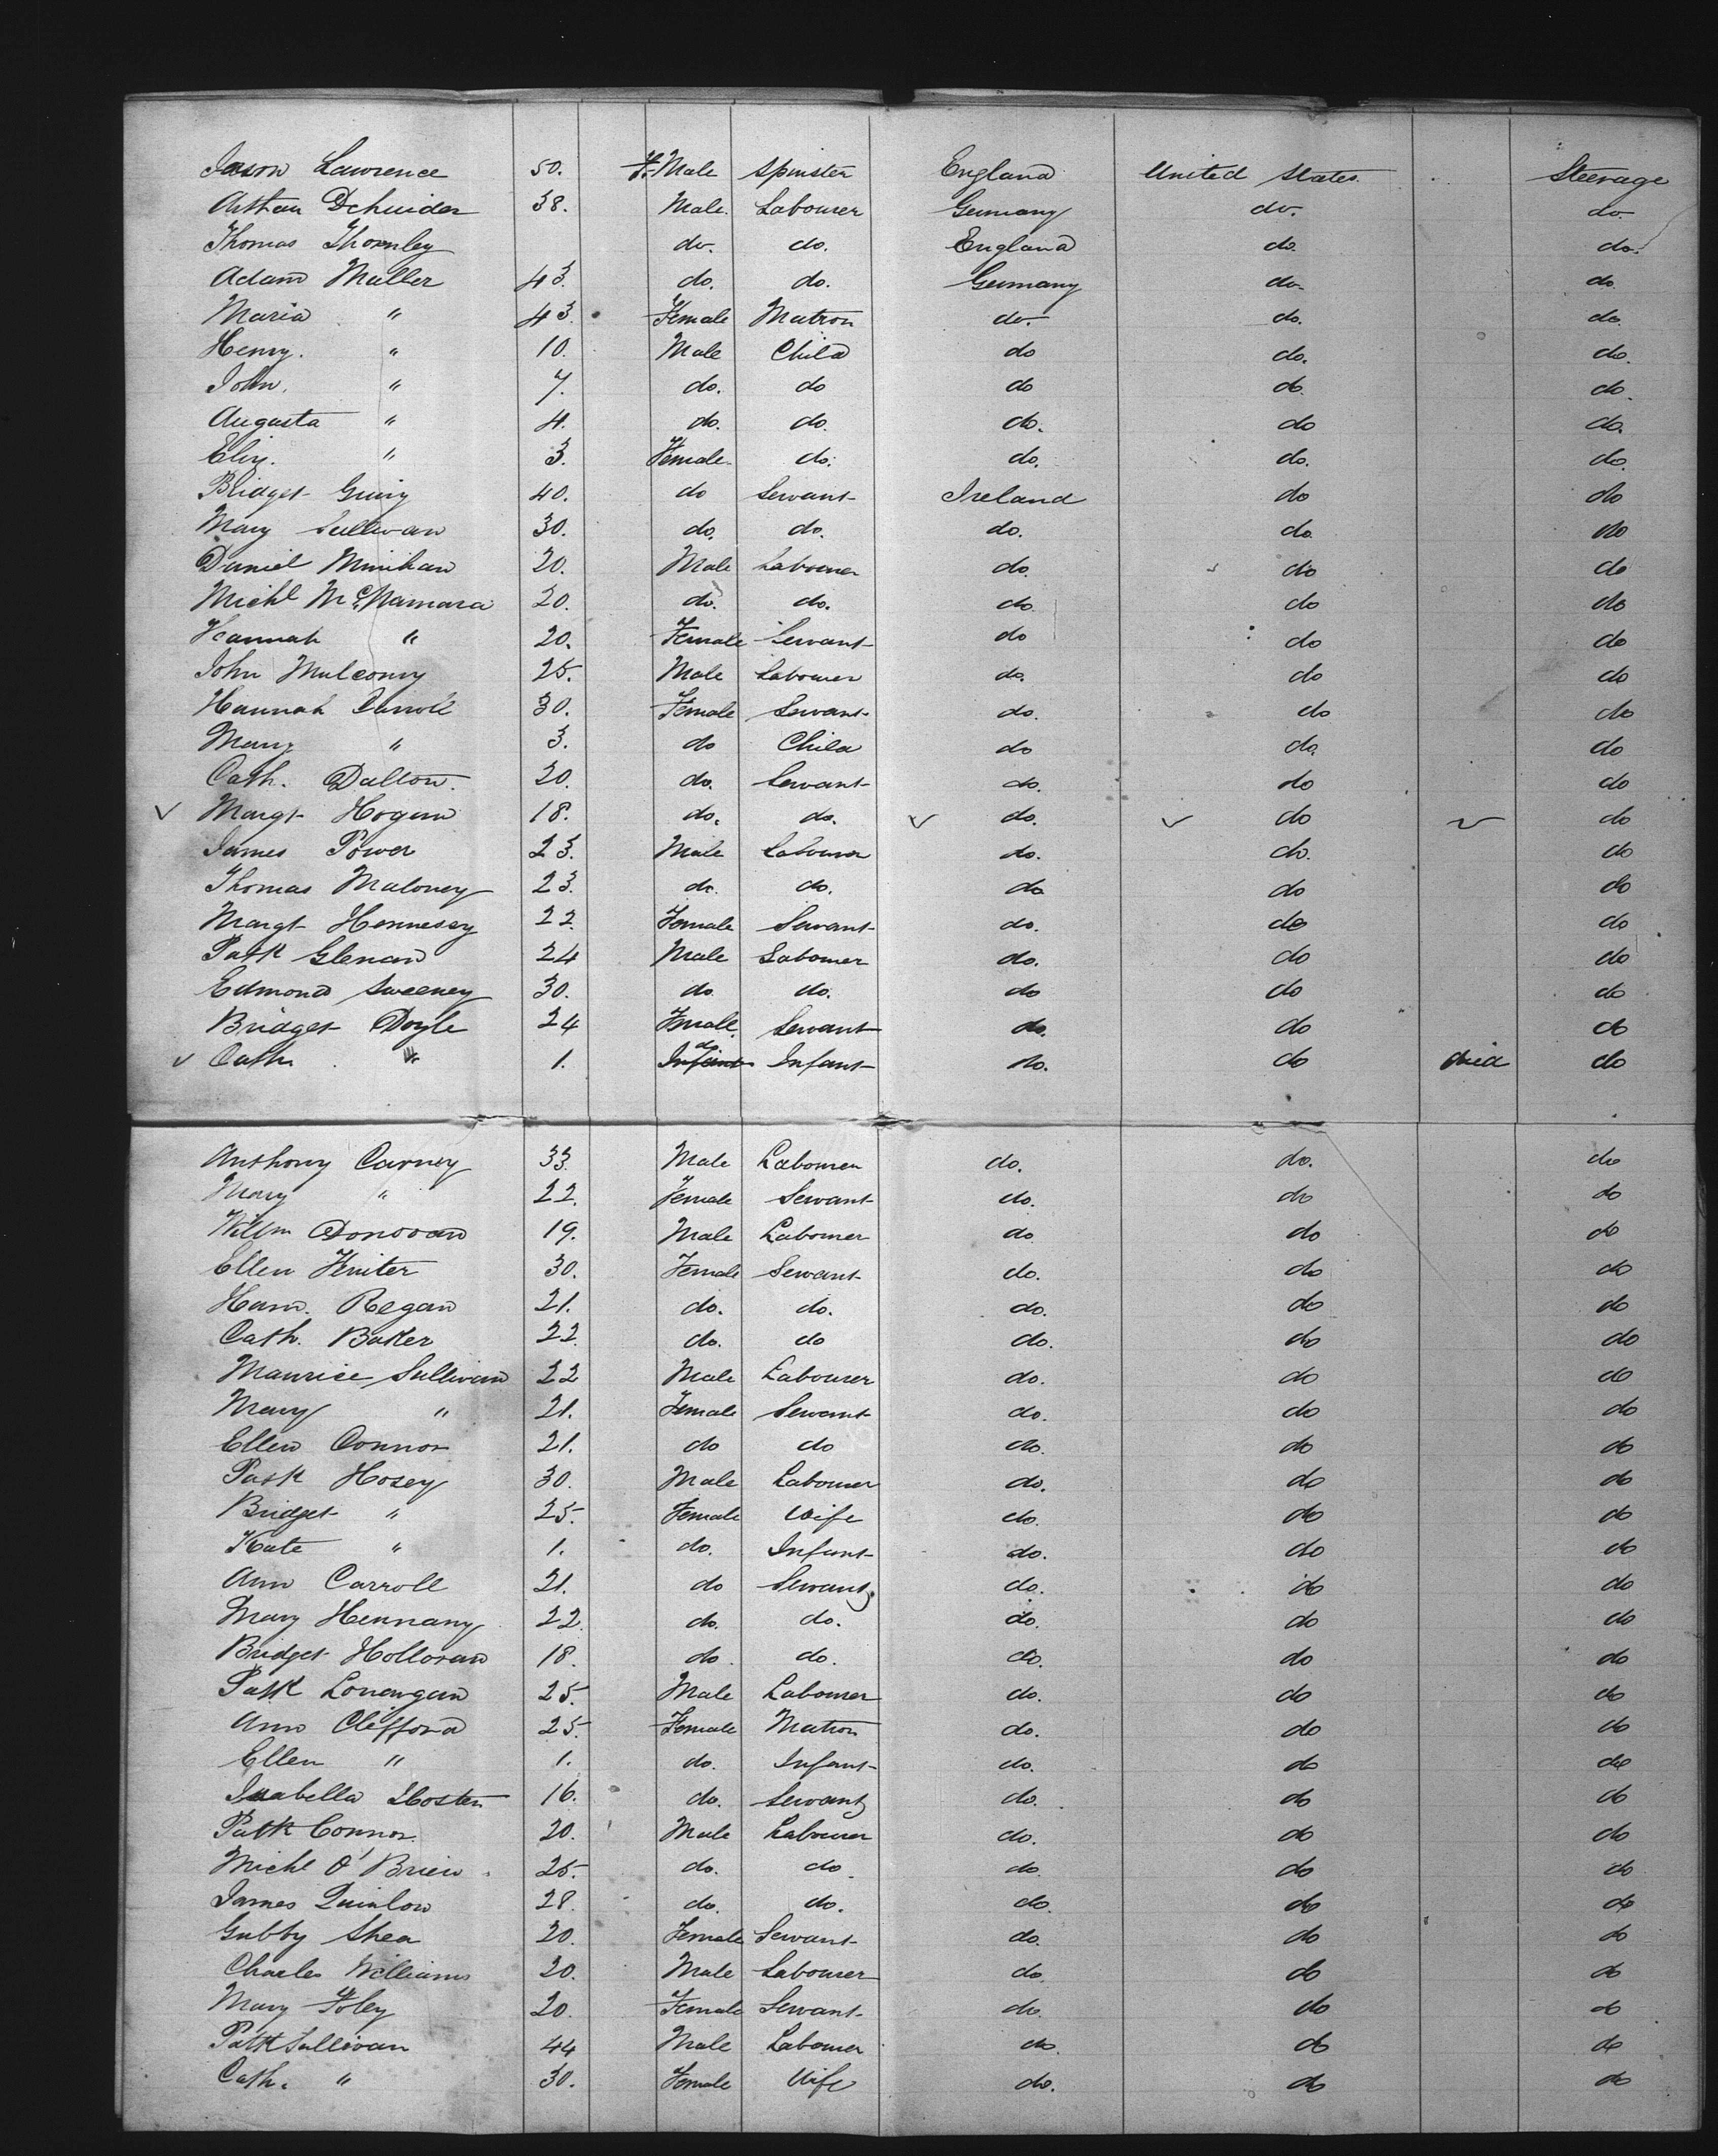 Jason Lawrence 50. F. Male Spinster England United States Steerage
Arthur Schuider 38. Male. Labourer Germany do. do.
Thomas Thornley do. do. England do. do.
Adam Muller 43. do. do. Germany do. do.
Maria " 43. Female Matron do. do. do.
Henry. " 10. Male Child do do. do.
John. " 7. do. do do do. do.
Augusta " 4. do. do. do. do do.
Eliz. " 3. Female. do. do. do. do.
Bridget 40. do Servant Ireland do do
Mary Sullivan 30. do. do. do. do. do
Daniel Minihan 20. Male Labourer do. do do
Michl McNamara 20. do. do. do. do do
Hannah " 20. Female Servant do do do
John Mulcomy 25. Male Labourer do. do do
Hannah Carroll 30. Female Servant do. do do
Mary " 3. do Child do do. do
Cath. Dalton. 20. do. Servant do. do do
✓ Margt Hogan 18. do. do. ✓ do. ✓ do ✓ do
James Power 23. Male Labourer do. do. do
Thomas Maloney 23. do. do. do do do
Margt Hennesey 22. Female Servant do. do do
Patk Glenan 24 Male Labourer do. do do
Edmond Sweeney 30. do. do. do do do
Bridget Doyle 24 Female. Servant do. do do
✓ Cath " 1. Infant do. Infant do. do died do
Anthony Carney 33. Male Labourer do. do. do
Mary " 22. Female Servant do. do do
Willm Donovan 19. Male Labourer do do do
Ellen Heniter 30. Female Servant do. do do
Hann. Regan 21. do. do. do. do do
Cath. Baker 22. do. do do. do do
Maurice Sullivan 22 Male Labourer do. do do
Mary " 21. Female Servant do. do do
Ellen Connor 21. do do do. do do
Patk Hosey 30. Male Labourer do. do do
Bridget " 25. Female Wife do. do do
Kate " 1. do. Infant do. do do
Ann Carroll 21. do Servant do. do do
Mary Hennany 22. do. do. do. do do
Bridget Holloran 18. do. do. do. do do
Patk Lonargan 25. Male Labourer do. do do
Ann Clifford 25. Female Matron do. do do
Ellen " 1. do. Infant do. do do
Isabella Hosten 16. do. Servant do. do do
Patk Connor. 20. Male Labourer do. do do
Michl O'Brien 25. do. do do. do do
James Quinlow 28. do. do. do. do do
Gubby Shea 20. Female Servant do. do do
Charles Williams 20. Male Labourer do. do do
Mary Foley 20. Female Servant do. do do
Patk Sullivan 44 Male Labourer do. do do
Cath. " 30. Female Wife do. do do